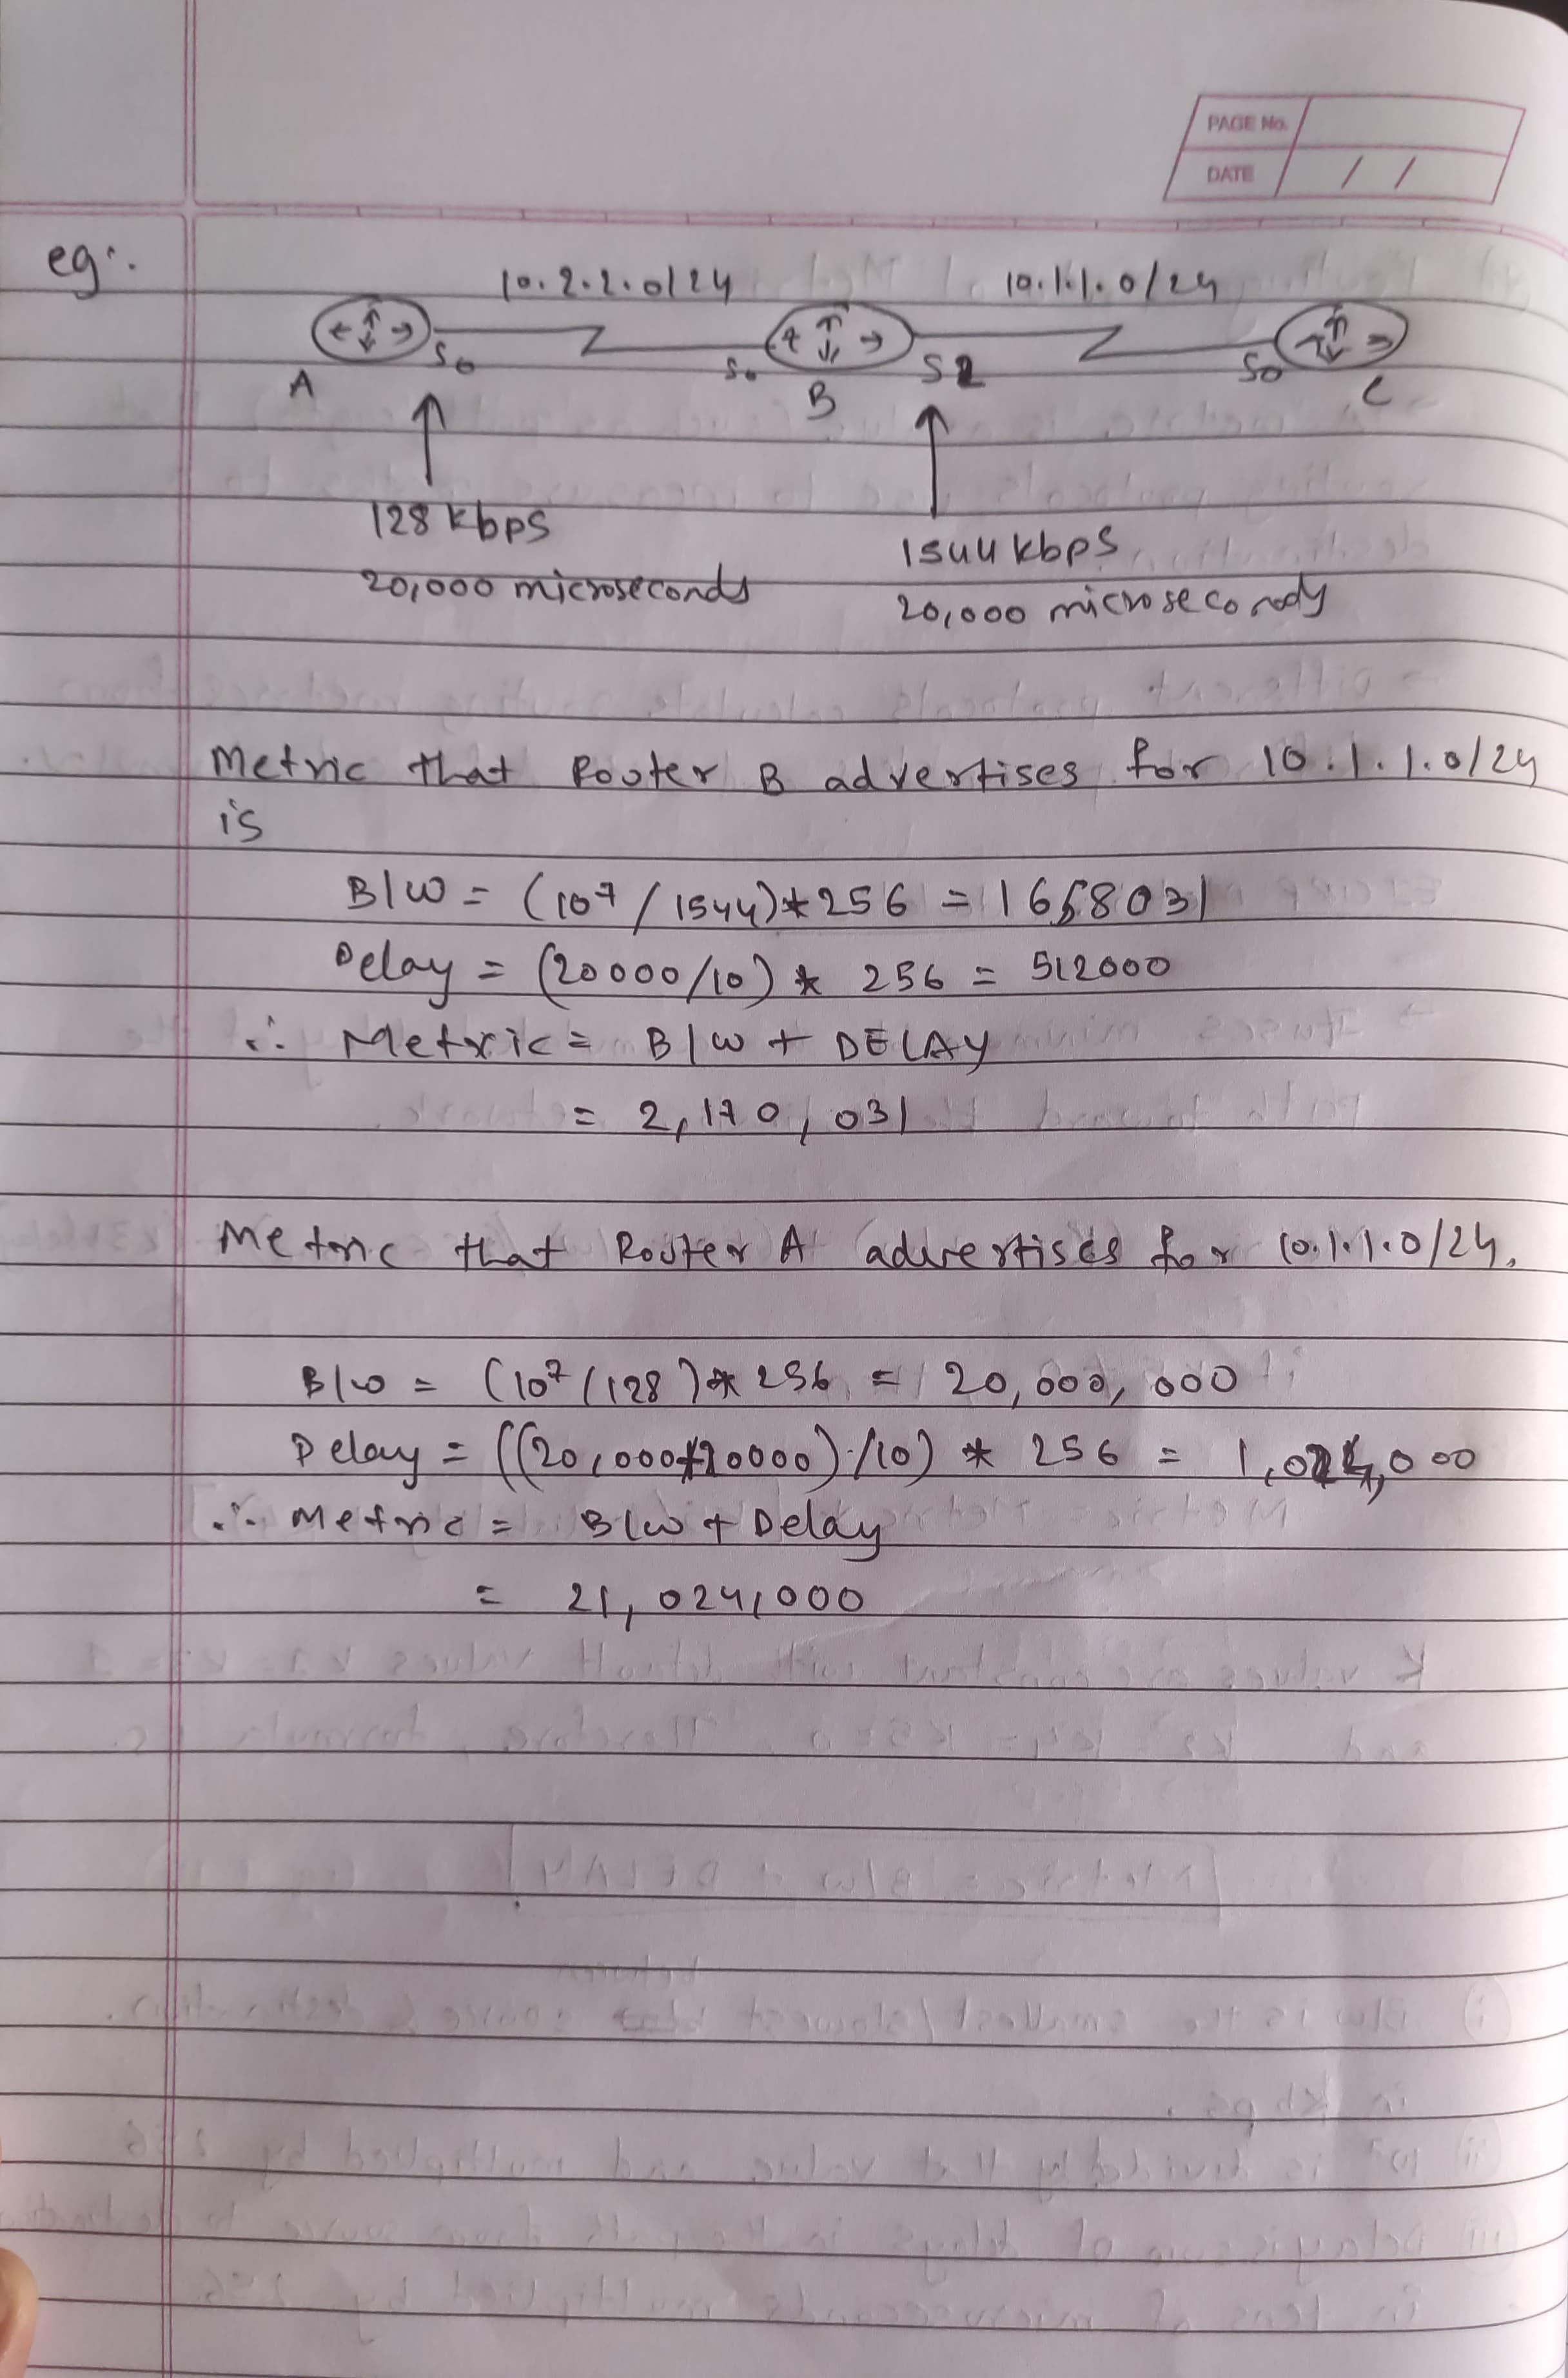 PAGE No.
DATE / /
eg:.
10.2.2.0/24 10.1.1.0/24
S0 S0 S2 S0
A B C
128 kbps
1544 kbps
20,000 microseconds
20,000 microseconds
Metric that Router B advertises for 10.1.1.0/24
is
B/W = (10⁷/1544)*256 = 1658031
Delay = (20000/10) * 256 = 512000
∴ Metric = B/W + DELAY
= 2,170,031
Metric that Router A advertises for 10.1.1.0/24.
B/W = (10⁷/128)* 256 = 20,000,000
Delay = ((20,000+20000)/10) * 256 = 1,024,000
∴ Metric = B/W + Delay
= 21,024,000